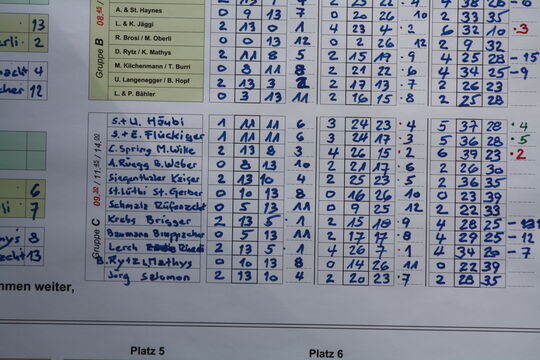 13
2
A. & St. Haynes 0 9 13 7 0 20 26 10 2 33 35
L. & K. Jäggi 2 13 0 1 4 23 4 2 6 32 10 3
R. Brosi / M. Oberli 0 0 13 12 0 2 26 12 2 9 32
D. Rytz / K. Mathys 2 11 8 5 2 15 17 9 4 25 28 -15
4 M. Kilchenmann / T. Burri 0 8 11 8 2 21 22 6 4 34 25 -9
12 U. Langenegger / B. Hopf 2 13 3 2 17 13 7 2 26 23
L. & P. Bähler 0 3 13 11 2 16 15 8 2 25 28
Gruppe B
S.+U. Häubi 1 11 11 6 3 24 23 4 5 37 28 4
S.+E. Flückiger 1 11 11 6 3 24 17 3 5 36 28 5
E. Spring M. Wilke 2 13 8 3 4 26 15 2 6 39 23 2
A. Rüegg B. Weber 0 8 13 10 2 21 17 6 2 26 30
6 Siegenthaler Keiser 2 13 10 4 2 25 23 5 2 36 35
7 St. Lüthi St. Gerber 0 10 13 8 0 16 26 10 0 23 39
Schmalz 0 5 13 11 0 9 25 12 2 22 33
Krebs Brügger 2 13 5 1 2 15 18 9 4 28 25
8 Baumann 0 5 13 11 2 17 17 8 4 29 25 -12
13 Lerch 2 13 5 1 4 26 7 1 4 34 20 -7
B. Rytz, Mathys 0 10 13 8 0 14 26 11 0 22 39
Jürg Salomon 2 13 10 4 2 20 23 7 2 28 35
Gruppe C 09.30 / 11.45 / 14.00
mmen weiter,
Platz 5 Platz 6